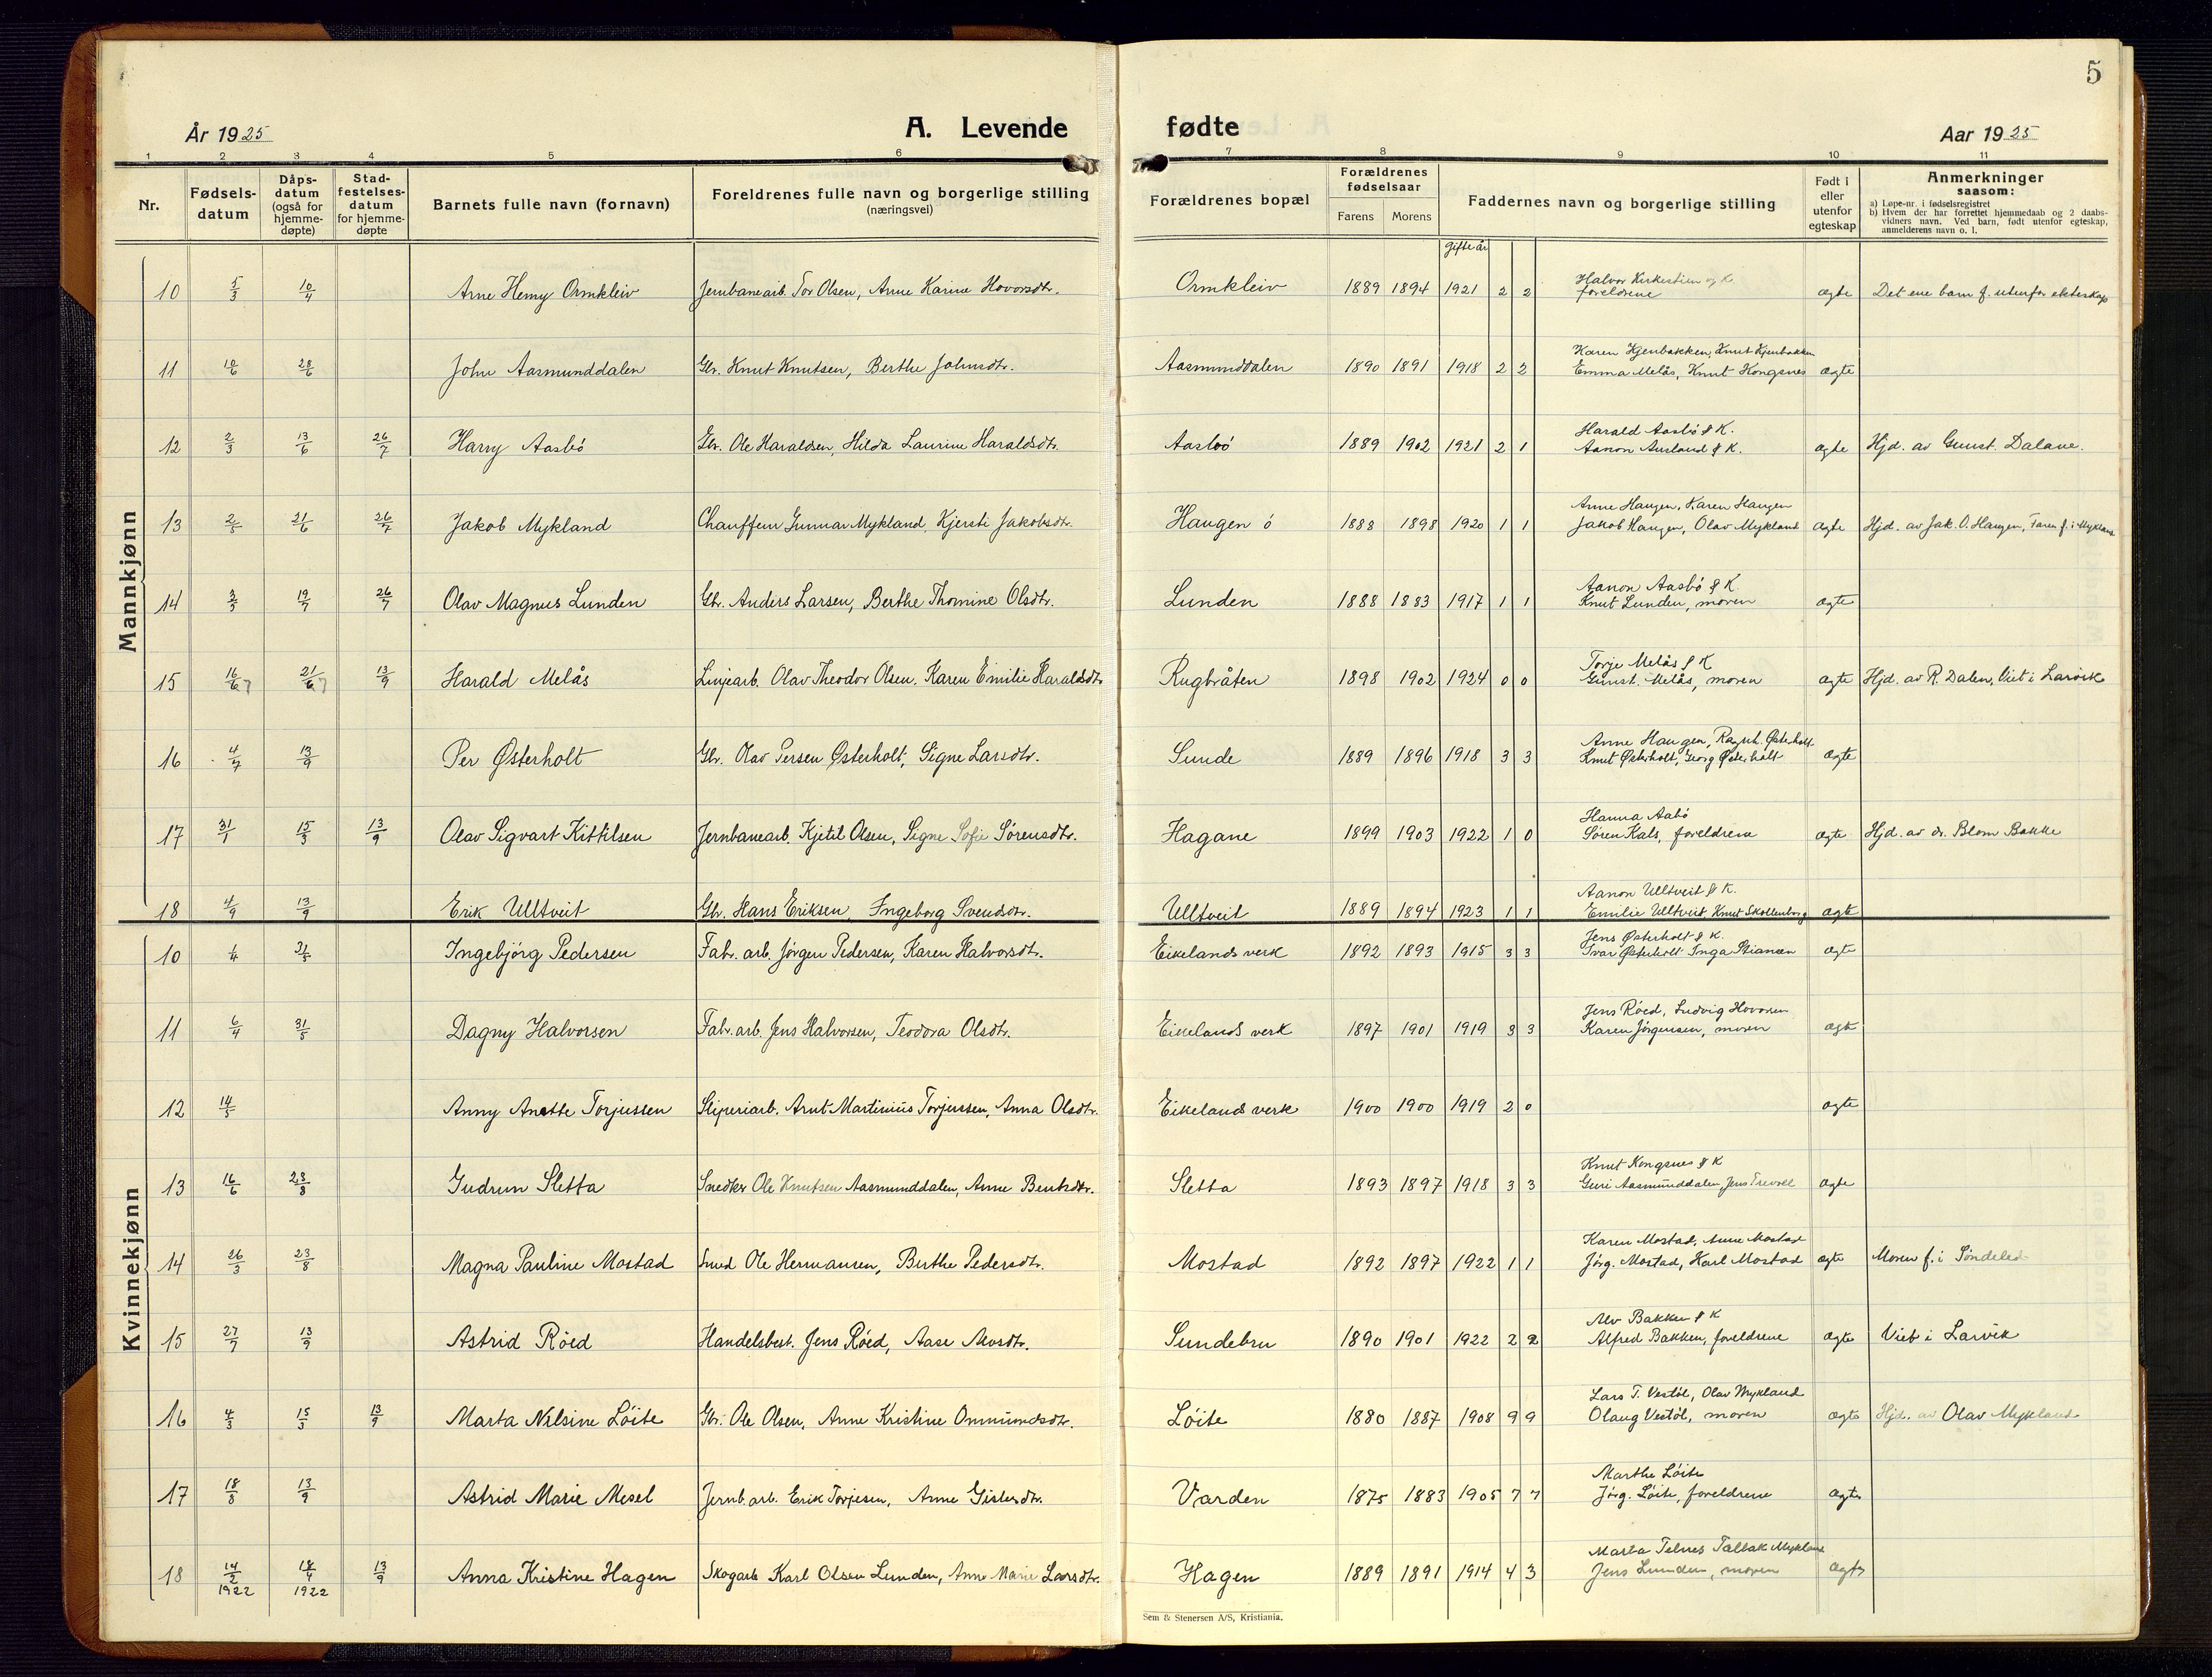 5
År 1925
A. Levende fødte
Aar 1925
1 2 3 4 5 6 7 8 9 10 11
Nr.
Fødsels-
datum
Dåps-
datum
(også for
hjemme-
døpte)
Stad-
festelses-
datum
for hjemme-
døpte
Barnets fulle navn (fornavn)
Foreldrenes fulle navn og borgerlige stilling
(næringsvei)
Forældrenes bopæl
Forældrenes
fødselsaar
Farens Morens
Faddernes navn og borgerlige stilling
Født i
eller
utenfor
egteskap
Anmerkninger
saasom:
a) Løpe-nr. i fødselsregistret
b) Hvem der har forrettet hjemmedaab og 2 daabs-
vidners navn. Ved barn, født utenfor egteskap,
anmelderens navn o. l.
Gifte år
Mannkjønn
Halvor Kirkestien og K.
10 5/3 10/4 Arne Henry Ormkleiv Jernbanearb. Tor Olsen, Anne Karine Hovorsdtr. Ormkleiv 1889 1894 1921 2 2 foreldrene ægte Det ene barn f. utenfor ekteskap
Karen Hjenbakken, Knut Hjenbakken
11 10/6 28/6 John Aasmunddalen Gbr. Knut Knutsen, Berthe Johnsdtr. Aasmunddalen 1890 1891 1918 2 2 Emma Melås, Knut Kongsnes ægte
Harald Aasbö & K.
12 2/3 13/6 26/7 Harry Aasbö Gbr. Ole Haraldsen, Hilda Laurine Haraldsdtr. Aasbö 1889 1902 1921 2 1 Aanon Ausland & K. ægte Hjd. av Gunst. Dalane.
Anne Haugen, Karen Haugen
13 2/5 21/6 26/7 Jakob Mykland Chauffeur Gunnar Mykland, Kjersti Jakobsdtr. Haugen ö 1888 1898 1920 1 1 Jakob Haugen, Olav Mykland ægte Hjd. av Jak. O. Haugen, Faren f. i Mykland
Aanon Aasbö & K
14 3/5 19/7 26/7 Olav Magnus Lunden Gbr. Anders Larsen, Berthe Thomine Olsdtr. Lunden 1888 1883 1917 1 1 Knut Lunden, moren ægte
Torje Melås & K
15 16/6 7 21/6 7 13/9 Harald Melås Linjearb. Olav Theodor Olsen. Karen Emilie Haraldsdtr Rugbråten 1898 1902 1924 0 0 Gunst. Melås, moren ægte Hjd. av R. Dalen, Viet i Larvik
Anne Haugen, Ragnh. Østerholt
16 4/7 13/9 Per Østerholt Gbr. Olav Persen Østerholt, Signe Larsdtr. Sunde 1889 1896 1918 3 3 Knut Østerholt, Georg Østerholt ægte
Hanna Aabö
17 31/1 15/3 13/9 Olav Sigvart Kittilsen Jernbanearb. Kjetil Olsen, Signe Sofie Sörensdtr. Hagane 1899 1903 1922 1 0 Sören Kals, foreldrene ægte Hjd. av dr. Blom Bakke
Aanon Ulltveit & K.
18 4/9 13/9 Erik Ulltveit Gbr. Hans Eriksen, Ingeborg Svendsdtr. Ulltveit 1889 1894 1923 1 1 Emilie Ulltveit Knut Skollenborg ægte
Kvinnekjønn
Jens Østerholt & K.
10 1/4 31/5 Ingebjörg Pedersen Fabr. arb. Jörgen Pedersen, Karen Halvorsdtr. Eikelands verk 1892 1893 1915 3 3 Ivar Østerholt Inga Stiansen ægte
Jens Röed, Ludvig Hovorsen
11 6/4 31/5 Dagny Halvorsen Fabr. arb. Jens Halvorsen, Teodora Olsdtr. Eikelands verk 1897 1901 1919 3 3 Karen Jörgensen, moren ægte
12 14/5 Anny Anette Torjussen Sliperiarb. Arnt Martinius Torjussen, Anna Olsdtr. Eikelands verk 1900 1900 1919 2 0 ægte
Knut Kongsnes & K
13 16/6 23/8 Gudrun Sletta Snedker Ole Knutsen Aasmunddalen, Anne Bentsdtr. Sletta 1893 1897 1918 3 3 Guri Aasmunddalen, Jens ægte
Karen Mostad, Anne Mostad
14 26/3 23/8 Magna Pauline Mostad Smed Ole Hermansen, Berthe Pedersdtr. Mostad 1892 1897 1922 1 1 Jörg. Mostad, Karl Mostad ægte Moren f. i Söndeled
Alv Bakken & K
15 27/7 13/9 Astrid Röed Handelsbest. Jens Röed, Aase Alvsdtr. Sundebru 1890 1901 1922 2 2 Alfred Bakken, foreldrene ægte Viet i Larvik
Lars T. Vestöl, Olav Mykland
16 4/3 15/3 13/9 Marta Nilsine Löite Gbr. Ole Olsen, Anne Kristine Ommundsdtr. Löite 1880 1887 1908 9 9 Olaug Vestöl, moren ægte Hjd. av Olav Mykland
Marthe Löite
17 18/8 13/9 Astrid Marie Mesel Jernb. arb. Erik Torjesen, Anne Gislesdtr. Varden 1875 1883 1905 7 7 Jörg. Löite, foreldrene ægte
Marta Telnes Tallak Mykland
18 14/2 1922 18/4 1922 13/9 Anna Kristine Hagen Skogarb Karl Olsen Lunden, Anne Marie Larsdtr. Hagen 1889 1891 1914 4 3 Jens Lunden, moren ægte
Sem & Stenersen A/S, Kristiania.